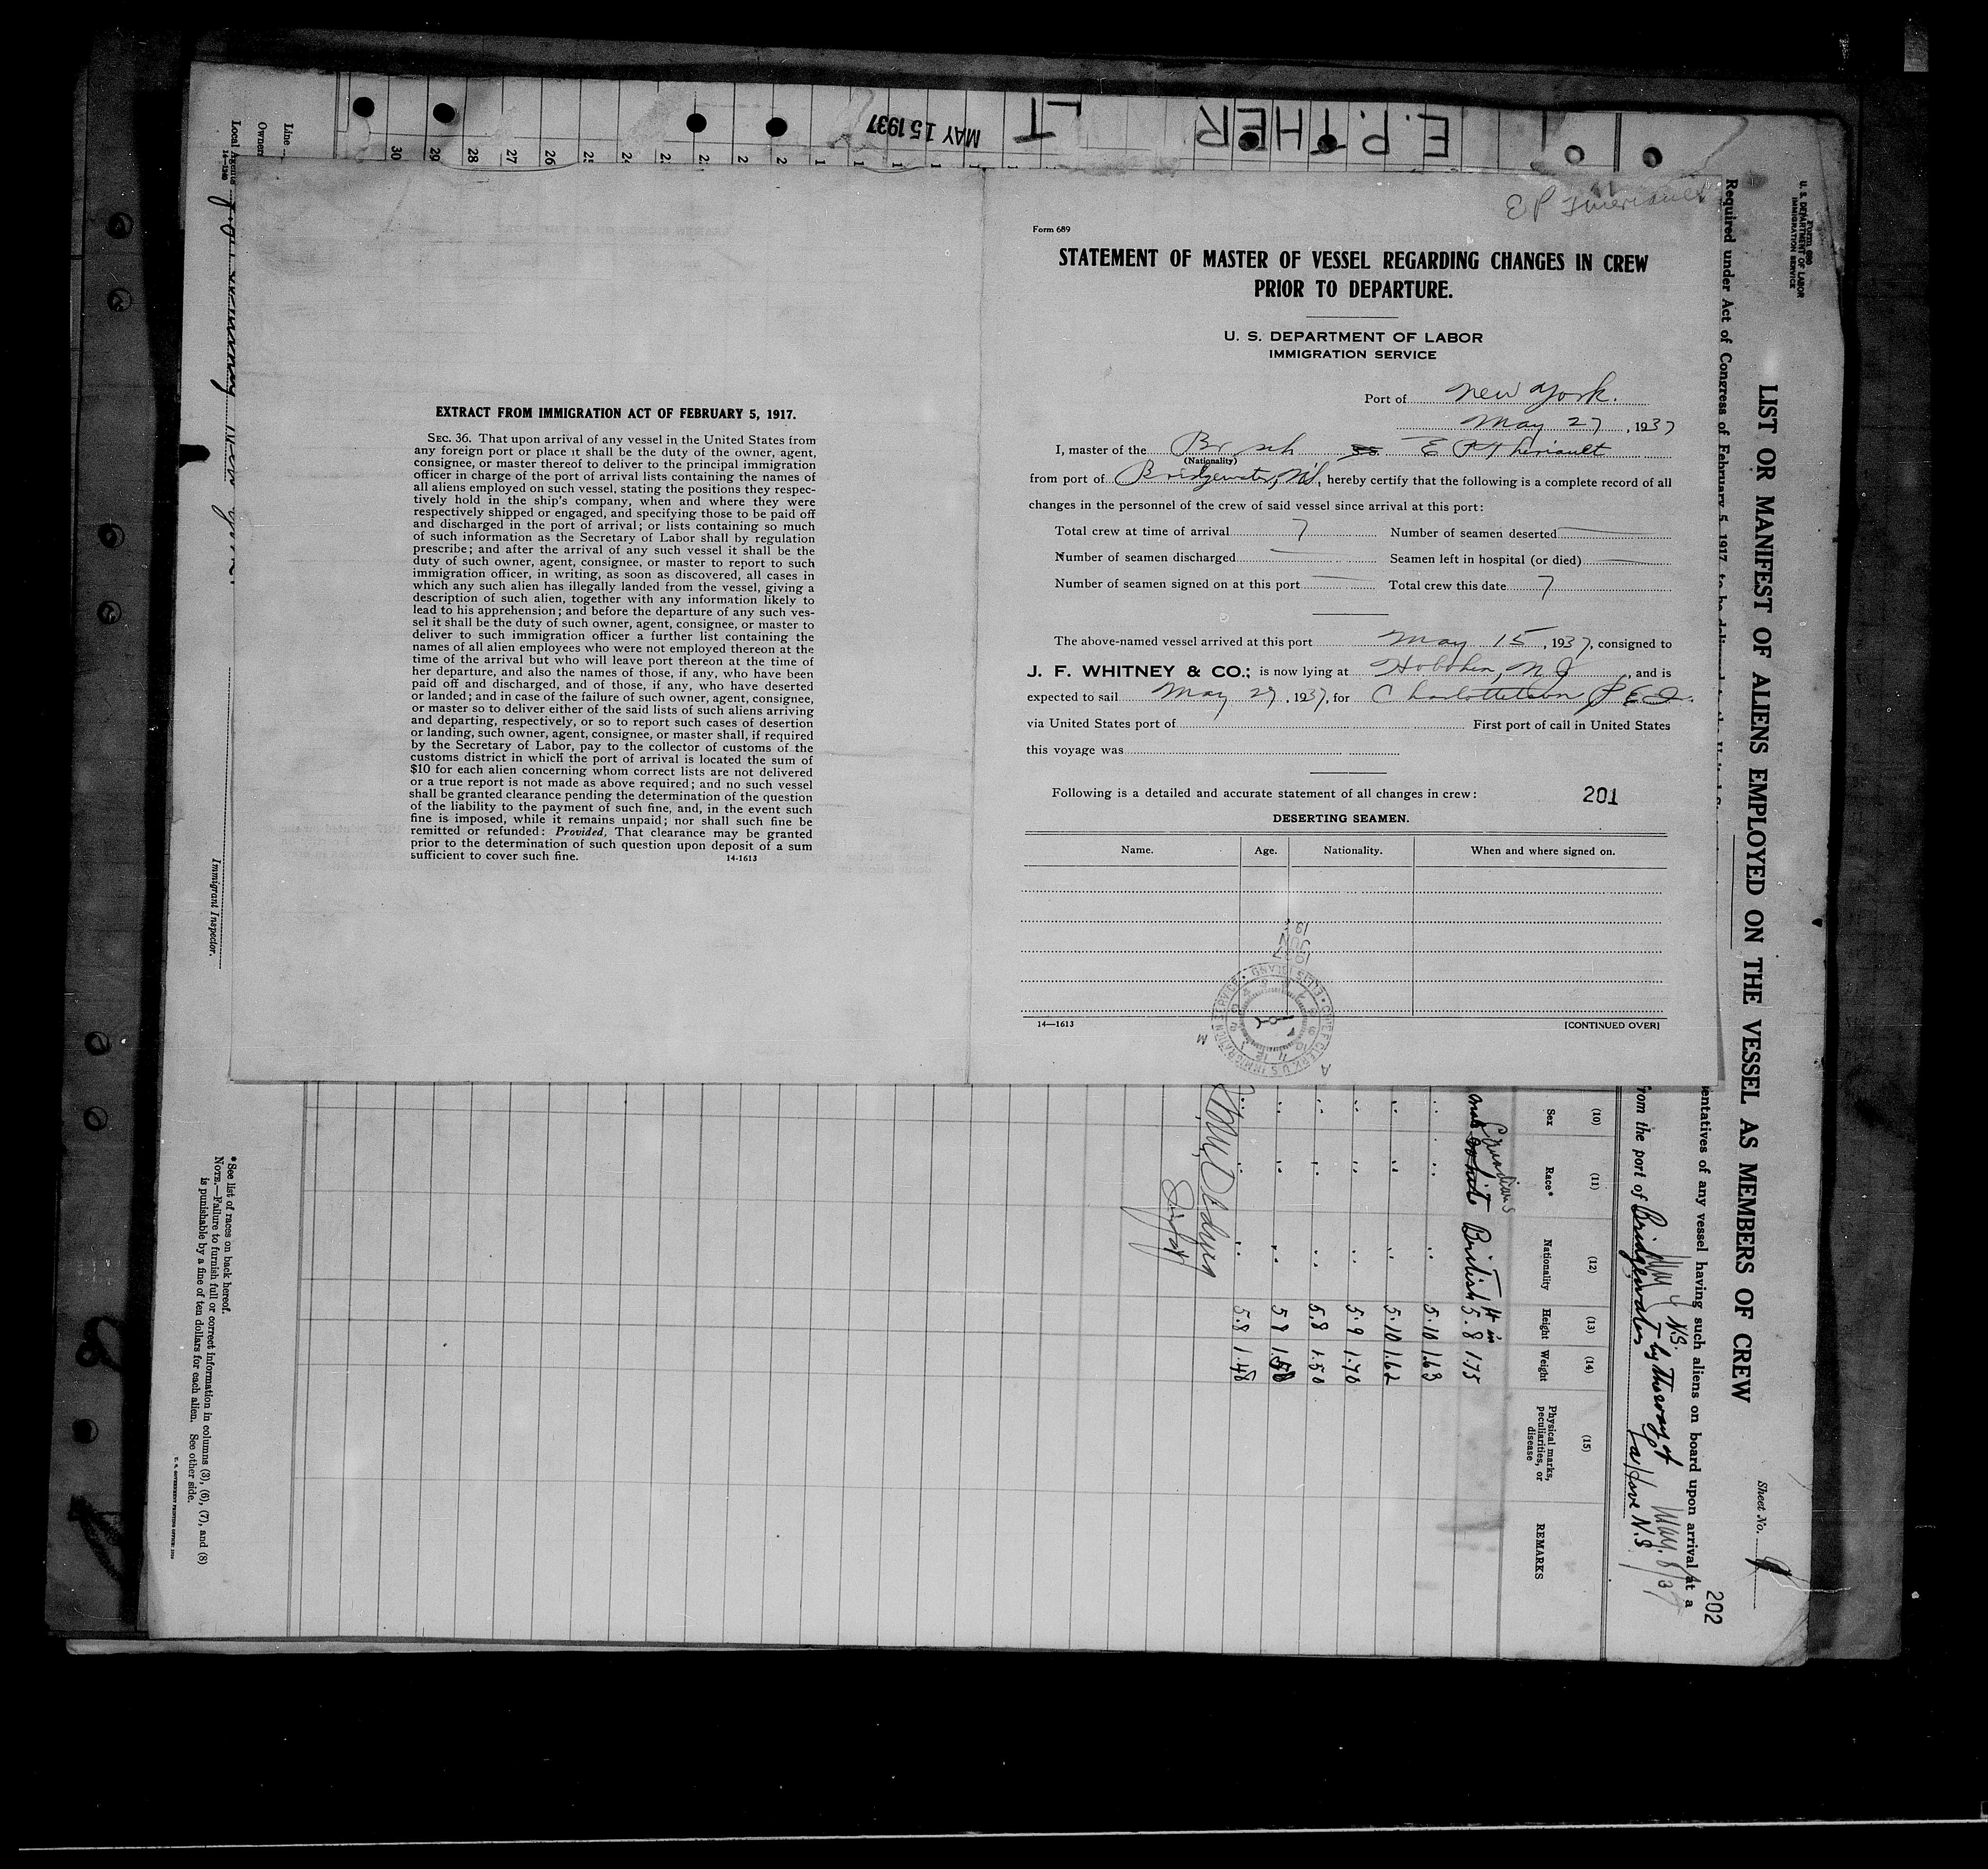 MAY 15 1937
E.P. THER
LT
30
29
28
27
26
E P Theriault
Form 689
STATEMENT OF MASTER OF VESSEL REGARDING CHANGES IN CREW
PRIOR TO DEPARTURE.
U. S. DEPARTMENT OF LABOR
IMMIGRATION SERVICE
Port of New York.
May 27, 1937
I, master of the Br sch ss E P Theriault
(Nationality)
from port of Bridgewater, NS, hereby certify that the following is a complete record of all
changes in the personnel of the crew of said vessel since arrival at this port:
Total crew at time of arrival 7 Number of seamen deserted
Number of seamen discharged Seamen left in hospital (or died)
Number of seamen signed on at this port Total crew this date 7
The above-named vessel arrived at this port May 15, 1937, consigned to
J. F. WHITNEY & CO.; is now lying at Hoboken, NJ, and is
expected to sail May 27, 1937, for Charlottetown P E I.
via United States port of First port of call in United States
this voyage was
Following is a detailed and accurate statement of all changes in crew: 201
DESERTING SEAMEN.
Name. Age. Nationality. When and where signed on.
14—1613 [CONTINUED OVER]
CHIEF CLERK, U.S. IMMIGRATION SERVICE • ELLIS ISLAND •
EXTRACT FROM IMMIGRATION ACT OF FEBRUARY 5, 1917.
SEC. 36. That upon arrival of any vessel in the United States from
any foreign port or place it shall be the duty of the owner, agent,
consignee, or master thereof to deliver to the principal immigration
officer in charge of the port of arrival lists containing the names of
all aliens employed on such vessel, stating the positions they respec-
tively hold in the ship's company, when and where they were
respectively shipped or engaged, and specifying those to be paid off
and discharged in the port of arrival; or lists containing so much
of such information as the Secretary of Labor shall by regulation
prescribe; and after the arrival of any such vessel it shall be the
duty of such owner, agent, consignee, or master to report to such
immigration officer, in writing, as soon as discovered, all cases in
which any such alien has illegally landed from the vessel, giving a
description of such alien, together with any information likely to
lead to his apprehension; and before the departure of any such ves-
sel it shall be the duty of such owner, agent, consignee, or master to
deliver to such immigration officer a further list containing the
names of all alien employees who were not employed thereon at the
time of the arrival but who will leave port thereon at the time of
her departure, and also the names of those, if any, who have been
paid off and discharged, and of those, if any, who have deserted
or landed; and in case of the failure of such owner, agent, consignee,
or master so to deliver either of the said lists of such aliens arriving
and departing, respectively, or so to report such cases of desertion
or landing, such owner, agent, consignee, or master shall, if required
by the Secretary of Labor, pay to the collector of customs of the
customs district in which the port of arrival is located the sum of
$10 for each alien concerning whom correct lists are not delivered
or a true report is not made as above required; and no such vessel
shall be granted clearance pending the determination of the question
of the liability to the payment of such fine, and, in the event such
fine is imposed, while it remains unpaid; nor shall such fine be
remitted or refunded: Provided, That clearance may be granted
prior to the determination of such question upon deposit of a sum
sufficient to cover such fine. 14-1613
Form 680
U. S. DEPARTMENT OF LABOR
IMMIGRATION SERVICE
LIST OR MANIFEST OF ALIENS EMPLOYED ON THE VESSEL AS MEMBERS OF CREW
Sheet No.
202
Required under Act of Congress of February 5, 1917, to be delivered to the United
entatives of any vessel having such aliens on board upon arrival at a
from the port of Bridgewater N.S. by the way of LaHave N.S. May. 8/37
(10) (11) (12) (13) (14) (15)
Sex Race* Nationality Height Weight Physical marks, peculiarities, or disease REMARKS
Canadians
male white British ft in 5.8 175
5.10 163
5.10 162
5.9 170
5.8 150
5 8 150
5.8 148
Line
Owners
Local Agents
14-1240
Immigrant Inspector.
*See list of races on back hereof.
NOTE.—Failure to furnish full or correct information in columns (3), (6), (7), and (8)
is punishable by a fine of ten dollars for each alien. See other side.